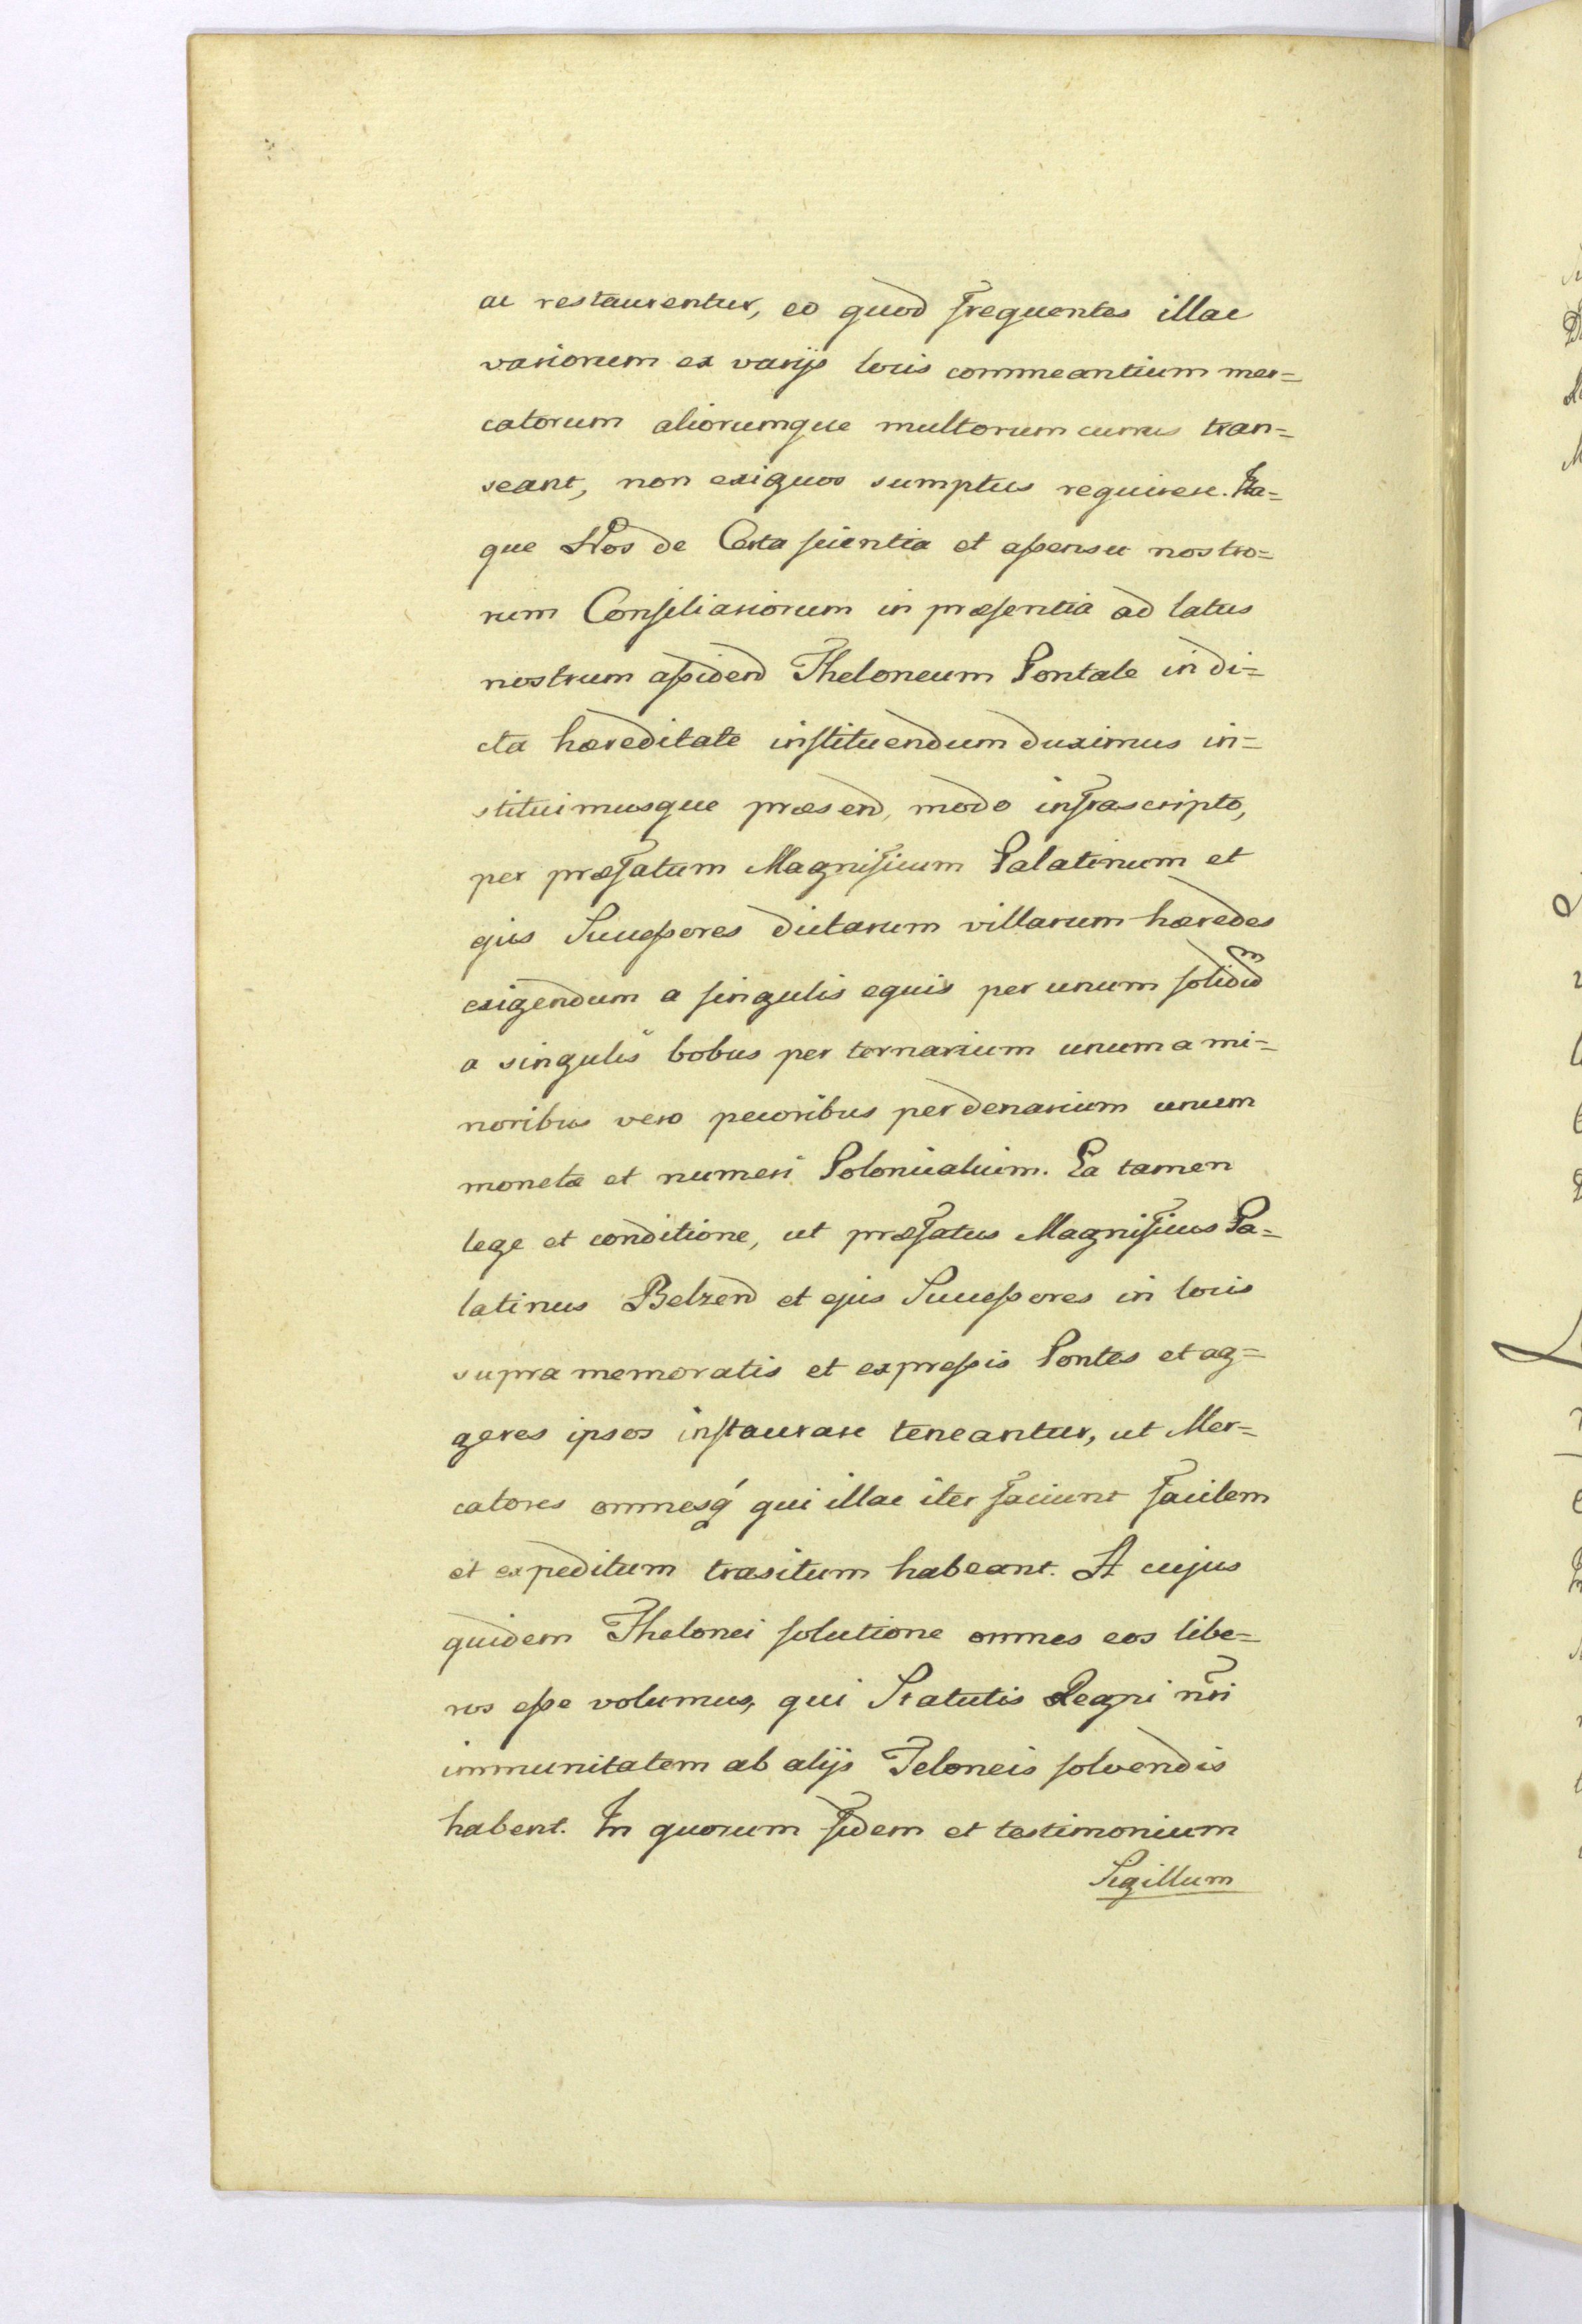 ac restaurentur, eo quod frequentes illac
variorum ex varijs locis commeantium mer=
catorum aliorumque multorum currus tran=
seant, non exiguos sumptus requirere. Ita=
que Nos de Certa scientia et assensu nostro=
rum Consiliariorum in præsentia ad latus
nostrum assidend Theloneum Pontale in di=
cta hæreditate instituendum duximus in=
stituimusque præsend, modo infrascripto,
per præfatum Magnificum Palatinum et
ejus Successores dictarum villarum hæredes
exigendum a singulis equis per unum solidum
a singulis bobus per ternarium unum a mi=
noribus vero pecoribus per denarium unum
monetæ et numeri Polonicalium. Ea tamen
lege et conditione, ut præfatus Magnificus Pa=
latinus Belzend et ejus Successores in locis
supra memoratis et expressis Pontes et ag=
geres ipsos instaurare teneantur, ut Mer=
catores omnesq́ qui illac iter faciunt facilem
et expeditum trasitum habeant. A cujus
quidem Thelonei solutione omnes eos libe=
ros esse volumus, qui Statutis Regni nr̃i
immunitatem ab alijs Teloneis solvendis
habent. In quorum fidem et testimonium
Sigillum